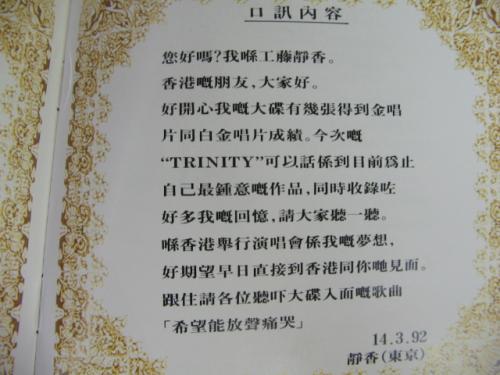 口訊內容
您好嗎?我喺工藤靜香。
香港嘅朋友,大家好。
好開心我嘅大碟有幾張得到金唱
片同白金唱片成績。今次嘅
“TRINITY”可以話係到目前爲止
自己最鍾意嘅作品,同時收錄咗
好多我嘅回憶,請大家聽一聽。
喺香港舉行演唱會係我嘅夢想,
好期望早日直接到香港同你哋見面。
跟住請各位聽吓大碟入面嘅歌曲
「希望能放聲痛哭」
14.3.92
靜香(東京)